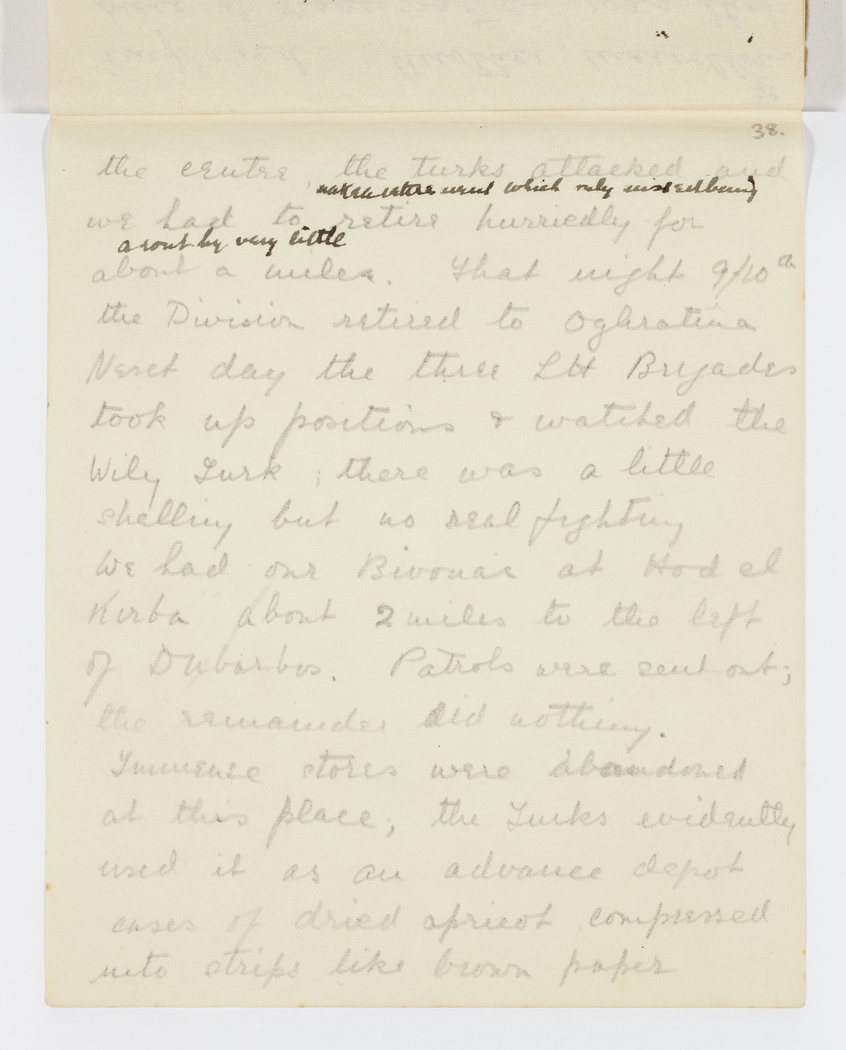 38.
the centre, the turks attacked and
make a retirement which only missed being
we had to retire hurriedly for
a rout by very little
about a miles. That night 9/10th
the Division retired to Oghratina
Next day the three LH Brigades
took up positions & watched the
Wily Turk; there was a little
shelling but no real fighting
We had our Bivouac at Hod el
Kirba about 2 miles to the left
of Dubarbus. Patrols were sent out;
the remainder did nothing.
Immense stores were abandoned
at this place; the Turks evidently
used it as an advance depot
cases of dried apricot, compressed
into strips like brown paper